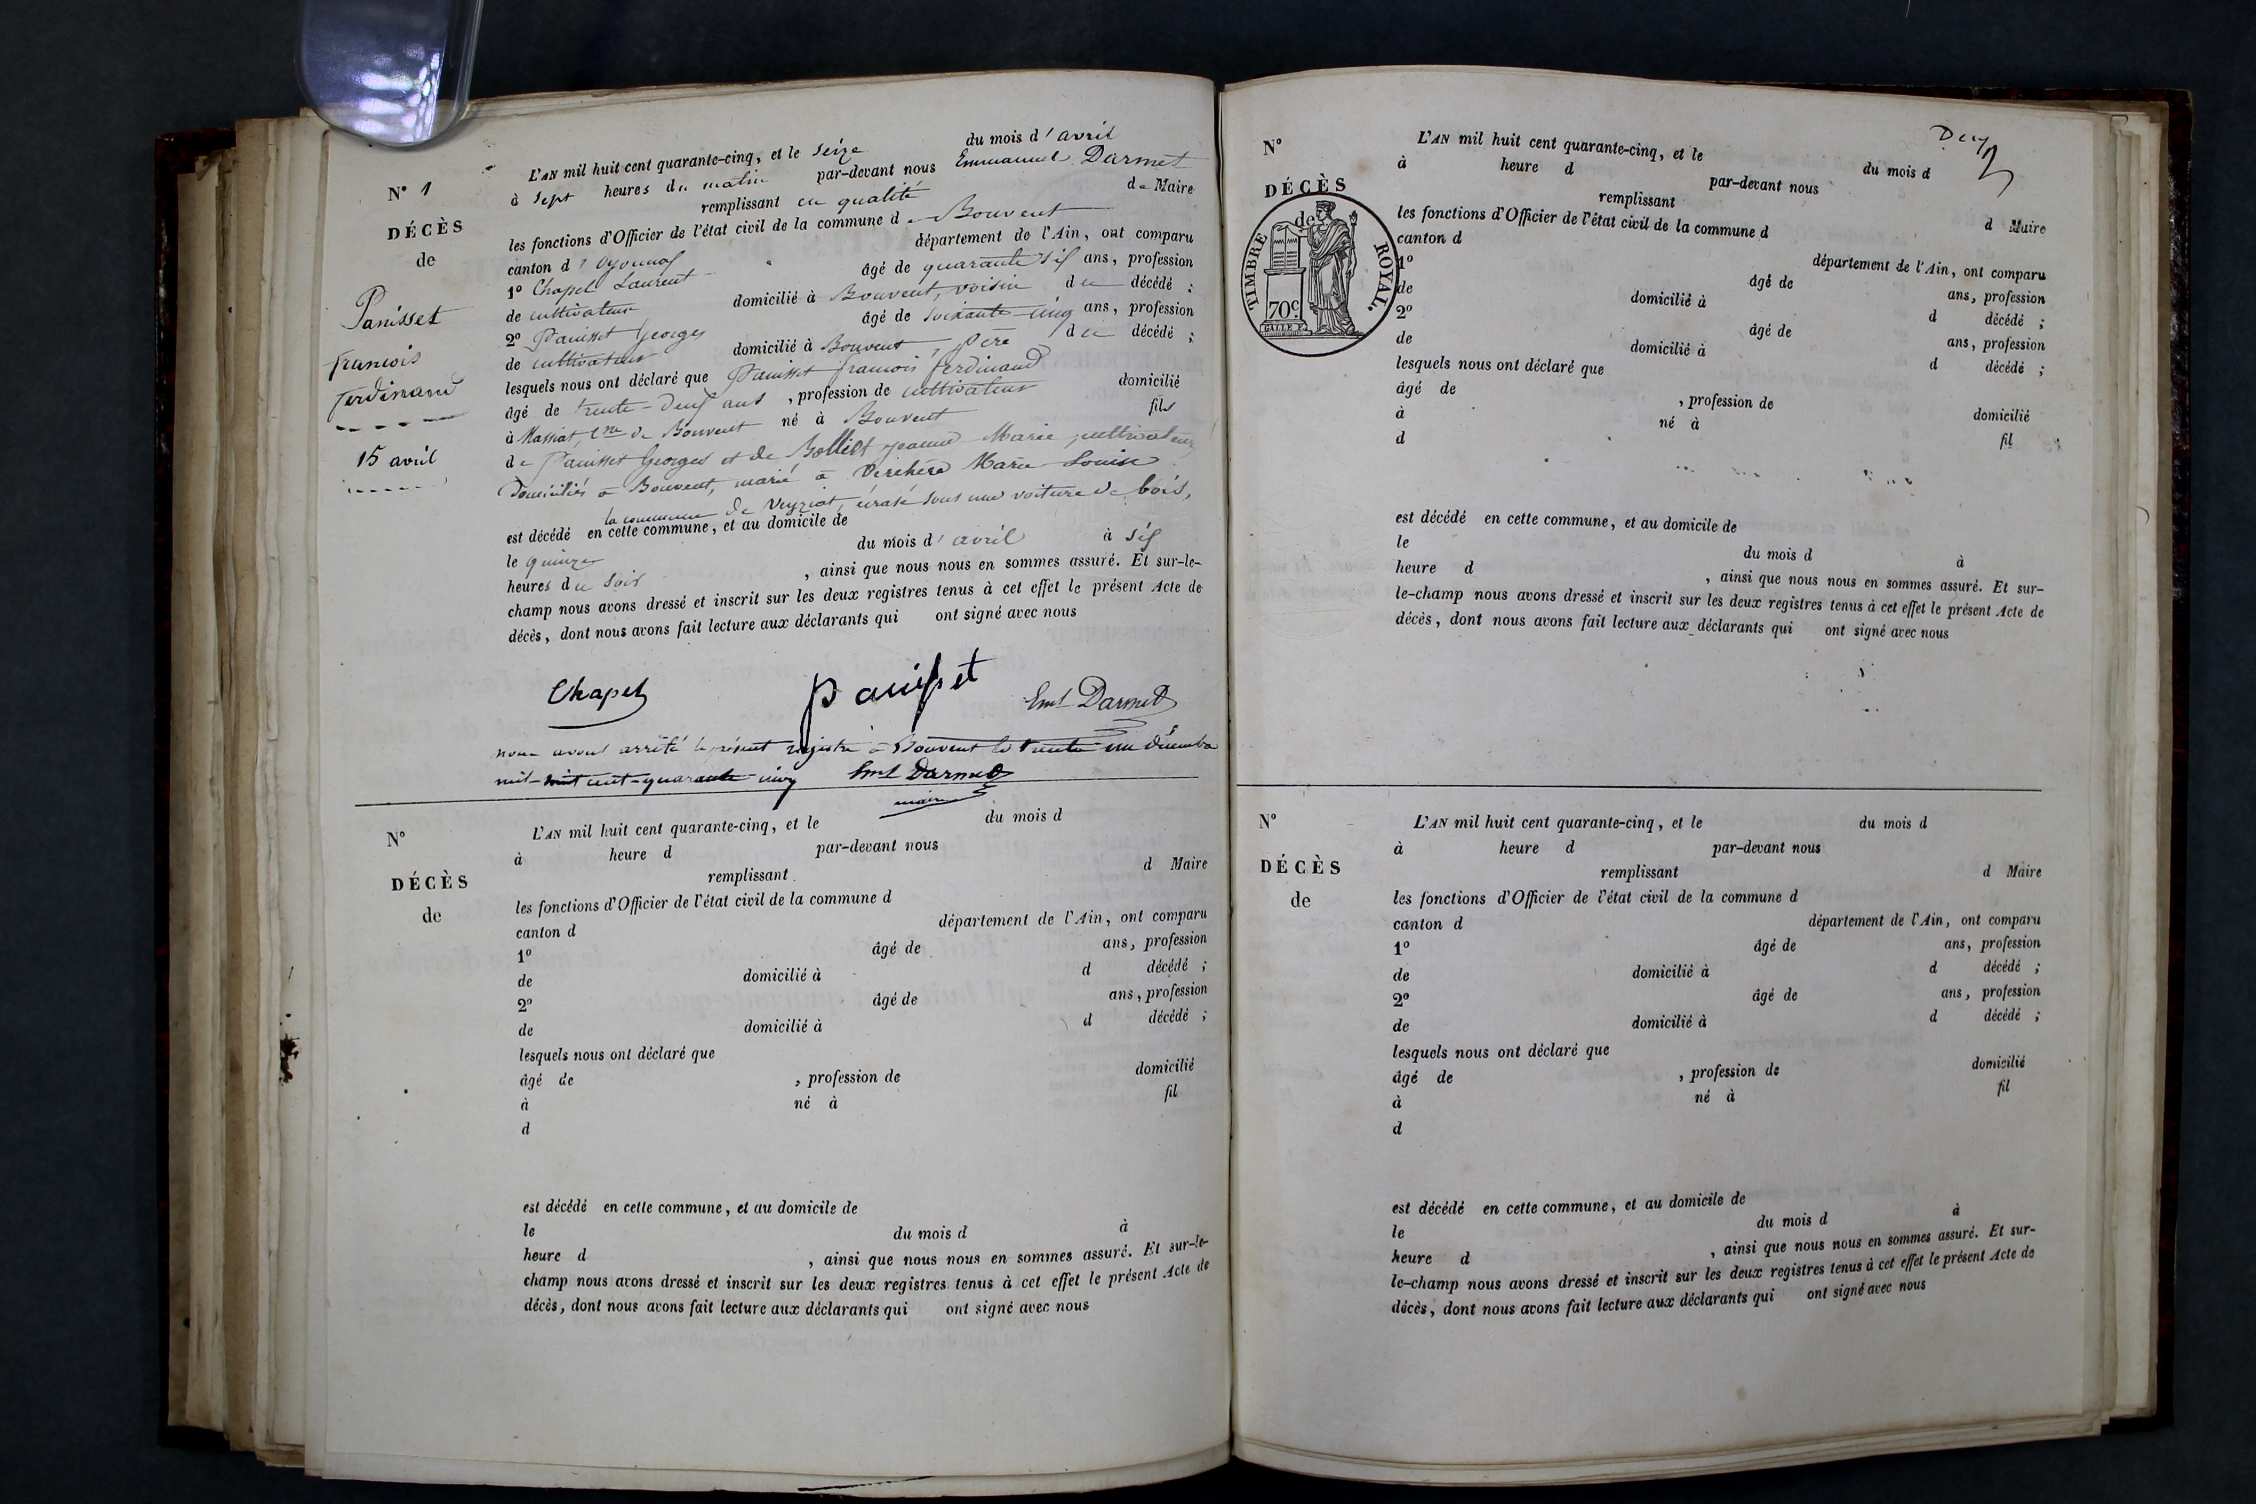 N° 1
DÉCÈS
de
Panisset
françois
ferdinand
15 avril
L'AN mil huit cent quarante-cinq, et le Seize du mois d'avril
à Sept heures du matin par-devant nous Emmanuel Darmet
remplissant en qualité de Maire
les fonctions d'Officier de l'état civil de la commune de Bouvent
canton d'Oyonnax département de l'Ain, ont comparu
1° Chapel Laurent âgé de quarante six ans, profession
de cultivateur domicilié à Bouvent, voisin du décédé ;
2° Panisset Georges âgé de soixante-cinq ans, profession
de cultivateur domicilié à Bouvent, père du décédé ;
lesquels nous ont déclaré que Panisset françois ferdinand
âgé de trente-deux ans, profession de cultivateur domicilié
à Massiat, Cne de Bouvent né à Bouvent fils
de Panisset Georges et de Bolliet jeanne Marie, cultivateurs
Domiciliés à Bouvent, marié à Marie Louise
est décédé en cette commune, et au domicile de la commune de Veyziat, écrasé sous une voiture de bois,
le quinze du mois d'avril à six
heures du soir, ainsi que nous nous en sommes assuré. Et sur-le-
champ nous avons dressé et inscrit sur les deux registres tenus à cet effet le présent Acte de
décès, dont nous avons fait lecture aux déclarants qui ont signé avec nous
Chapel Panisset Eml Darmet
nous avons arrêté le présent registre à Bouvent le trente-un décembre
mil-huit cent-quarante-cinq Eml Darmet
maire
N°
DÉCÈS
de
L'AN mil huit cent quarante-cinq, et le du mois d
à heure d par-devant nous
remplissant d Maire
les fonctions d'Officier de l'état civil de la commune d
canton d département de l'Ain, ont comparu
1° âgé de ans, profession
de domicilié à d décédé ;
2° âgé de ans, profession
de domicilié à d décédé ;
lesquels nous ont déclaré que
âgé de , profession de domicilié
à né à fil
d
est décédé en cette commune, et au domicile de
le du mois d à
heure d , ainsi que nous nous en sommes assuré. Et sur-le-
champ nous avons dressé et inscrit sur les deux registres tenus à cet effet le présent Acte de
décès, dont nous avons fait lecture aux déclarants qui ont signé avec nous
N°
DÉCÈS
de
TIMBRE ROYAL.
70c.
GALLE F.
L'AN mil huit cent quarante-cinq, et le du mois d
à heure d par-devant nous
remplissant d Maire
les fonctions d'Officier de l'état civil de la commune d
canton d département de l'Ain, ont comparu
1° âgé de ans, profession
de domicilié à d décédé ;
2° âgé de ans, profession
de domicilié à d décédé ;
lesquels nous ont déclaré que
âgé de , profession de domicilié
à né à fil
d
est décédé en cette commune, et au domicile de
le du mois d à
heure d , ainsi que nous nous en sommes assuré. Et sur-
le-champ nous avons dressé et inscrit sur les deux registres tenus à cet effet le présent Acte de
décès, dont nous avons fait lecture aux déclarants qui ont signé avec nous
N°
DÉCÈS
de
L'AN mil huit cent quarante-cinq, et le du mois d
à heure d par-devant nous
remplissant d Maire
les fonctions d'Officier de l'état civil de la commune d
canton d département de l'Ain, ont comparu
1° âgé de ans, profession
de domicilié à d décédé ;
2° âgé de ans, profession
de domicilié à d décédé ;
lesquels nous ont déclaré que
âgé de , profession de domicilié
à né à fil
d
est décédé en cette commune, et au domicile de
le du mois d à
heure d , ainsi que nous nous en sommes assuré. Et sur-
le-champ nous avons dressé et inscrit sur les deux registres tenus à cet effet le présent Acte de
décès, dont nous avons fait lecture aux déclarants qui ont signé avec nous